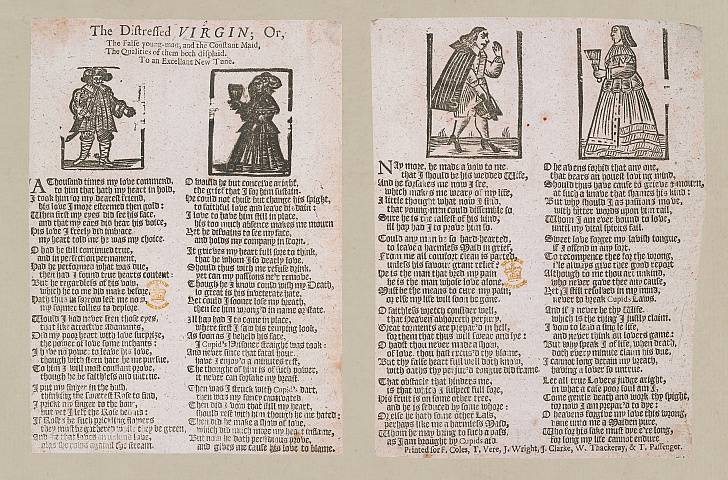 The Distressed VIRGIN; Or,
The False young-man, and the Constant Maid,
The Qualities of them both displaid.
To an Excellant New Tune.
A Thousand times my love commend,
to him that hath my heart in hold,
I took him for my dearest friend,
his love I more esteemed then gold:
When first my eyes did see his face,
and that my ears did hear his voice,
His love I freely did imbrace,
my heart told me he was my choice.
O had he still continued true,
and in perfection permanent,
Had he performed what was due,
then had I found true hearts content:
But he regardless of his vow,
which he to me did make before,
Hath thus in sorrow left me now,
my former follies to deplore.
Would I had never seen those eyes,
that like attractive adamants,
Did my poor heart with love surprize,
the power of love some inchants:
I have no power to leave his love,
though with stern hate he me pursue,
To him I will most constant prove,
though he be faithless and untrue.
I put my finger in the bush,
thinking the sweetest Rose to find,
I prickt my finger to the bone,
but yet I left the Rose behind:
If Roses be such prickling flowers
they must be gathered while they be green,
And she that loves an unkind love,
alas she rows against the stream.
O would he but conceive aright,
the grief that I for him sustain,
He could not chuse but change his spight,
to faithful love and leave disdain:
I love to have him still in place,
his too much absence makes me mourn
Yet he disdains to see my face,
and holds my company in scorn.
It grieves my heart full sore to think,
that he whom I so dearly love,
Should thus with me refuse drink,
yet can my passions ne'r remove.
Though he I know could wish my Death,
so great is his inveterate hate,
Yet could I sooner lose my breath,
then see him wrong'd in name or state.
Ill hap had I to come in place,
where first I saw his tempting look,
As soon as I beheld his face,
I Cupid's Prisoner straight was took:
And never since that fatal hour
have I enjoy'd a minutes rest,
The thought of him is of such power,
it never can forsake my breast
Then was I struck with Cupid's dart,
then was my fancy captivated,
Then did I vow that still my heart,
should rest with him though he me hated:
Then did he make a show of love,
which did much more my heart inflame,
But now he doth perfidious prove,
and gives me cause his love to blame.
NAy more, he made a vow to me
that I should be his wedded Wife,
And he forsakes me now I see,
which makes me weary of my life,
I little thought what now I find,
that young-men could dissemble so
Sure he is the falsest of his kind,
ill hap had I to prove him so.
Could any man be so hard-hearted,
to leave a harmless Maid in grief,
From me all comfort clean is parted,
unless his favour grant relief:
He is the man that bred my pain
he is the man whose love alone,
Must be the means to cure my pain,
or else my life will soon be gone.
O faithless wretch consider well,
that Heaven abhorreth perjury,
Great torments are prepar'd in hell,
for them that thus will swear and lye:
O hadst thou never made a show,
of love, thou hadst excus'd thy blame,
But thy false heart full well doth know,
with oaths thy perjur'd tongue did frame
That obstacle that hinders me,
is that which I suspect full sore,
His fruit is on some other tree,
and he is seduced by some whore:
Or else he hath some other Lass,
perhaps like me a harmless Maid,
Whom he may bring to such a pass,
as I am brought by Cupids aid.
O heavens forbid that any one,
that bears an honest loving mind,
Should thus have cause to grieve & mourn,
at such a knave that shames his kind:
But why should I as passions move,
with bitter words upon him rail,
Whom I am ever bound to love,
until my vital spirits fail.
Sweet love forget my lavish tongue,
if I offend in any sort,
To recompence thee for the wrong,
I'le always give thee good report
Although to me thou art unkind,
who never gave thee any cause,
Yet I still resolved in my mind,
never to break Cupids Laws.
And if I never be thy Wife,
which is the thing I justly claim,
I vow to lead a single life,
and never think on lovers game:
But why speak I of life, when death,
doth every minute claim his due,
I cannot long detain my breath,
having a lover so untrue.
Let all true Lovers judge aright,
in what a case poor soul am I,
Come gentle death and work thy spight,
for now I am prepar'd to dye:
O heavens forgive my love this wrong,
done unto me a Maiden pure,
Who for his sake must dye e're long,
for long my life cannot endure
Printed for F. Coles, T. Vere, J. Wright, J. Clarke, W. Thackeray, & T. Passenger.